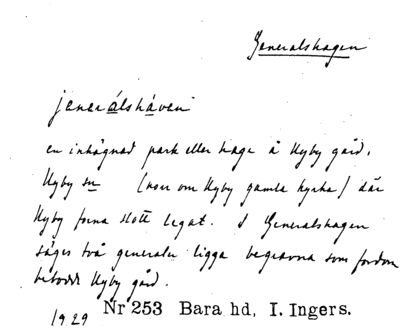 Generalshagen
jenerálshávan
en inhägnad park eller hage å Hyby gård,
Hyby sn (norr om Hyby gamla kyrka) där
Hyby forna slott legat. I Generalshagen
säges två generaler ligga begravna som fordom
bebott Hyby gård.
1929 Nr 253 Bara hd, I. Ingers.